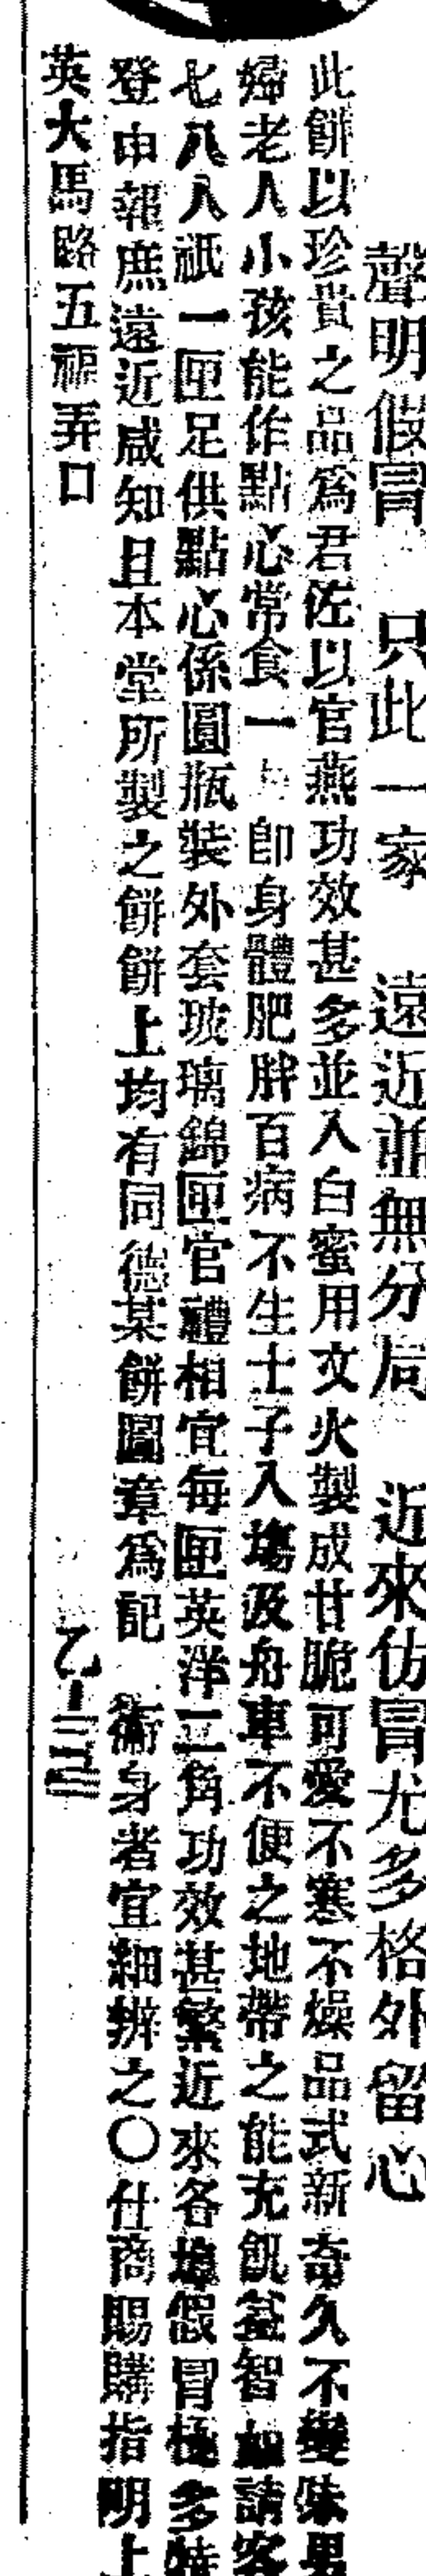 聲明假冒 只此一家 遠近並無分局 近來仿冒尤多格外留心
此餅以珍貴之品爲君佐以官燕功效甚多並入白蜜用文火製成甘脆可愛不寒不燥品式新奇久不變味男
婦老人小孩能作點心常食一 卽身體肥胖百病不生士子入塲及舟車不便之地帶之能充飢益智如請客
七八人祇一匣足供點心係圓瓶裝外套玻璃錦匣官禮相宜每匣英洋二角功效甚繁近來各埠假冒極多特
登申報庶遠近咸知且本堂所製之餅餅上均有同德某餅圖章爲記 衞身者宜細辨之〇仕商賜購指明上
英大馬路五福弄口